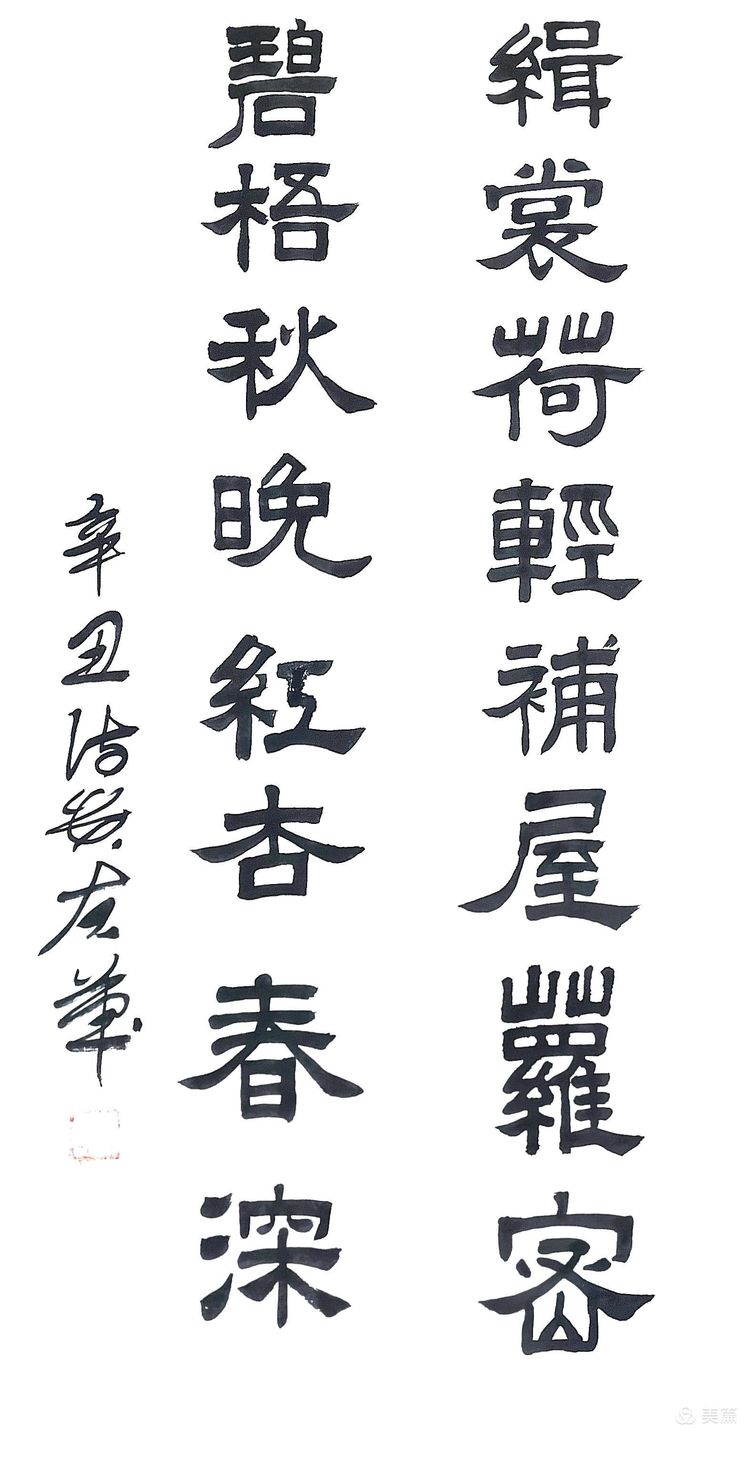 緝裳荷輕補屋蘿密
碧梧秋晚紅杏春深
辛丑
美篇